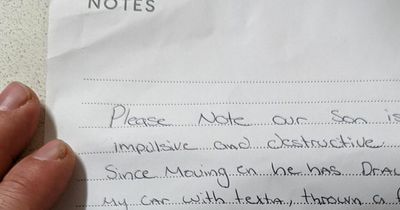 NOTES
Please Note our Son is
impulsive and destructive
Since Moving in he has
My car with texta, thrown a